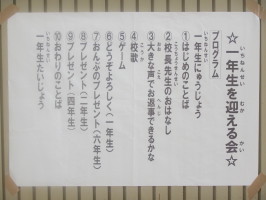 ☆一年生を迎える会☆
プログラム
一年生にゅうじょう
①はじめのことば
②校長先生のおはなし
③大きな声でお返事できるかな
④校歌
⑤ゲーム
⑥どうぞよろしく(一年生)
⑦おんぶのプレゼント(六年生)
⑧プレゼント(二年生)
⑨プレゼント(四年生)
⑩おわりのことば
一年生たいじょう